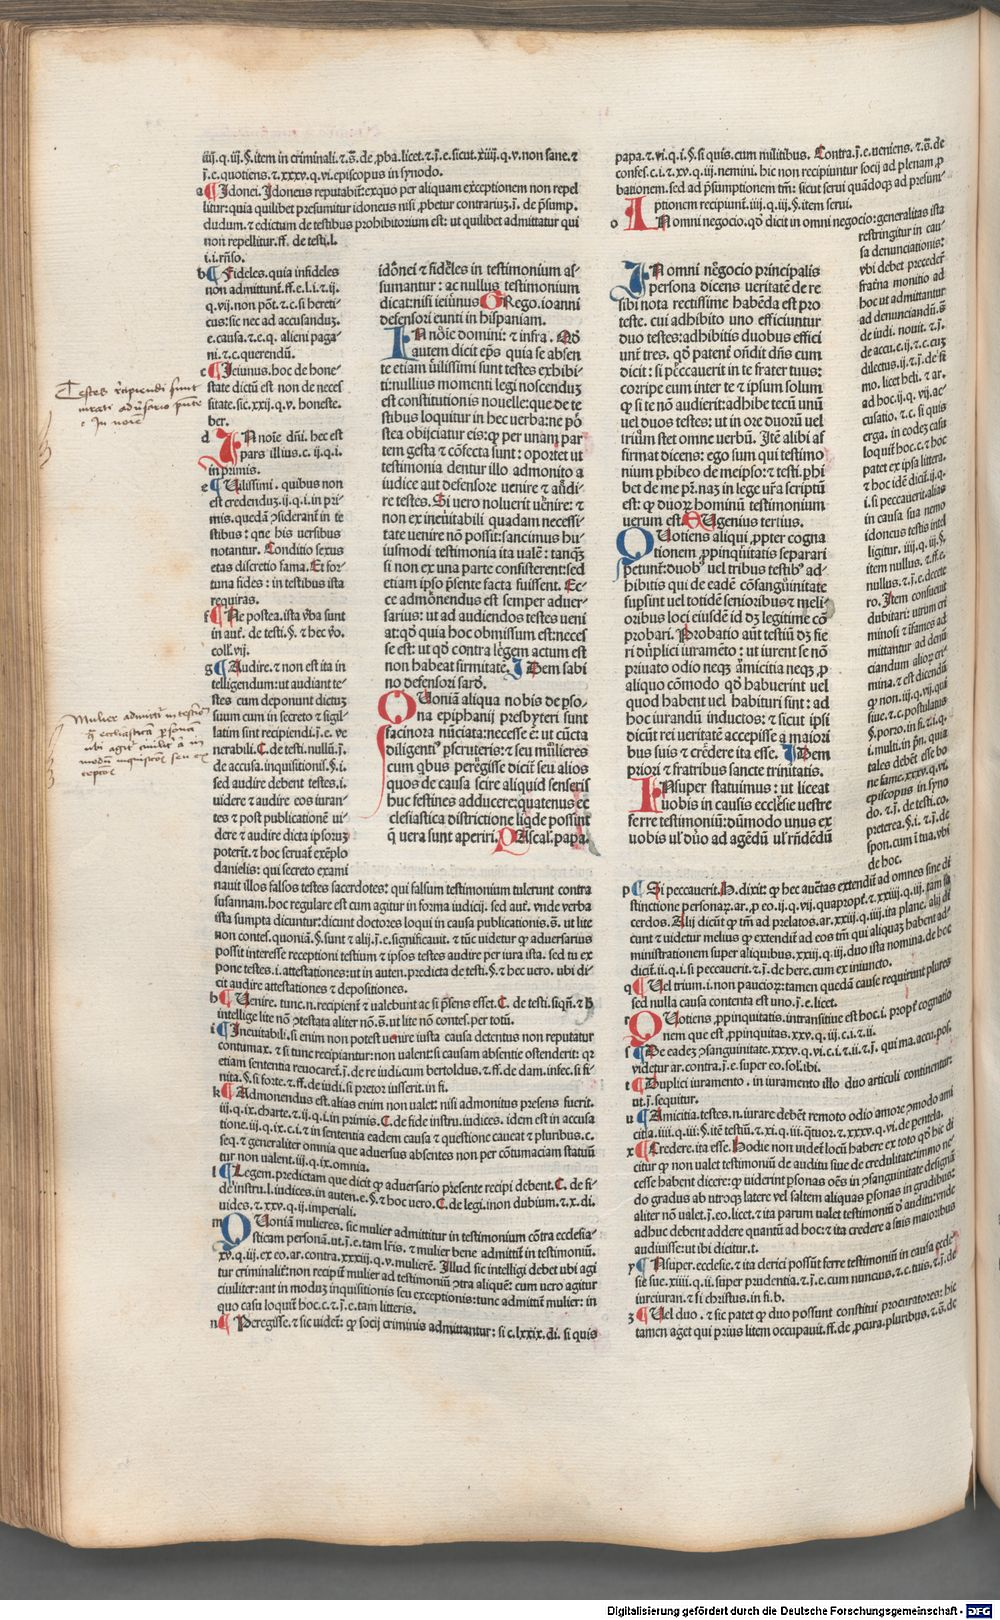 iiij.q.iij.§.item in criminali.⁊.s̄.de ,pba.licet.⁊.j̄.e.sicut.xiiij.q.v.non sane.⁊
j̄.e.quotiens.⁊.xxxv.q.vi.episcopus in synodo.
a Idonei. Idoneus reputabit̄: ex quo per aliquam exceptionem non repel
litur: quia quilibet presumitur idoneus nisi ,pbetur contrarium.j̄. de p̄sump.
dudum. ⁊ edictum de testibus prohibitorium est: ut quilibet admittatur qui
non repellitur. ff. de testi. l.
i. i. rn̄so.
b Fideles. quia infideles
non admittunt̄. ff. e. l. i. ⁊. ij.
q. vij. non pōt. ⁊. c. si hereti-
cus: sic nec ad accusanduz.
e. causa. ⁊. e. q. alieni paga-
ni. ⁊. c. querendū.
c Ieiunus. hoc de hone-
state dictū est non de neces
sitate. sic. xxij. q. v. honeste.
ber.
d In noīe dn̄i. hec est
pars illius. c. ij. q. i.
in primis.
e Uilissimi. quibus non
est credenduz. ij. q. i. in pri-
mis. quedā ↄsiderant̄ in te
stibus: que his versibus
notantur. Conditio sexus
etas discretio fama. Et for-
tuna fides: in testibus ista
requiras.
f Ne postea. ista v̄ba sunt
in aut̄. de testi. §. ⁊ hec v̄o.
coll. vij.
g Audire. ⁊ non est ita in
telligendum: ut audiant te-
stes cum deponunt dictuz
suum cum in secreto ⁊ sigil-
latim sint recipiendi. j̄. e. ve
nerabili. C. de testi. nullū. j̄.
de accusa. inquisitionis. §. i.
sed audire debent testes. i.
uidere ⁊ audire eos iuran-
tes ⁊ post publicationē vi-
dere ⁊ audire dicta ipsoruz
poterit̄. ⁊ hoc seruat̄ exēplo
danielis: qui secreto exami
nauit illos falsos testes sacerdotes: qui falsum testimonium tulerunt contra
susannam. hoc regulare est cum agitur in forma iudicij. sed aut̄. vnde verba
ista sumpta dicuntur: dicunt doctores loqui in causa publicationis. s̄. ut lite
non contes. quoniā. §. sunt ⁊ alij. j̄. e. significauit. ⁊ tūc videtur ꝙ aduersarius
possit interesse receptioni testium ⁊ ipsos testes audire per iura ista. sed tu ex
pone testes. i. attestationes: ut in auten. predicta de testi. §. ⁊ hec uero. ubi di-
cit audire attestationes ⁊ depositiones.
h Uenire. tunc. n. recipient̄ ⁊ ualebunt ac si p̄sens esset. C. de testi. siqn̄. ⁊ h̄
intellige lite nō ↄtestata aliter nō. s̄. ut lite nō contes. per totū.
i Ineuitabili. si enim non potest uenire iusta causa detentus non reputatur
contumax. ⁊ si tunc recipiantur: non ualent: si causam absentie ostenderit: qr
etiam sententia reuocaret̄. j̄. de re iudi. cum bertoldus. ⁊ ff. de dam. infec. si fi-
nita. §. si forte. ⁊ ff. de iudi. si pretor iusserit. in fi.
k Admonendus est. alias enim non ualet: nisi admonitus presens fuerit.
iij. q. ix. charte. ⁊. ij. q. i. in primis. C. de fide instru. iudices. idem est in accusa
tione. iij. q. ix. c. i. ⁊ in sententia eadem causa ⁊ questione caueat ⁊ pluribus. c.
seq. ⁊ generaliter omnia que aduersus absentes non per cōtumaciam statuū
tur non valent. iij. q. ix. omnia.
l Legem. predictam que dicit ꝙ aduersario presente recipi debent. C. de fi-
de instru. l. iudices. in auten. e. §. ⁊ hoc uero. C. de legi. l. non dubium. ⁊. x. di.
uides. ⁊. xxv. q. ij. imperiali.
m Quoniā mulieres. sic mulier admittitur in testimonium cōtra ecclesia-
sticam personā. ut. j̄. e. tam lr̄is. ⁊ mulier bene admittit̄ in testimoniū.
xv. q. iij. ex eo. ar. contra. xxxiij. q. v. mulierē. Illud sic intelligi debet ubi agi
tur criminalit̄: non recipit̄ mulier ad testimoniū ↄtra aliquē: cum uero agitur
ciuiliter: aut in modum inquisitionis seu exceptionis: tunc admittit̄ mulier: in
quo casu loquit̄ hoc. c. ⁊. j̄. e. tam litteris.
n Peregisse. ⁊ sic videt̄: ꝙ socij criminis admittantur: si c. lxxix. di. si quis
Testes recipiendi sunt
Mulier admittit̄ in testimo
idōnei ⁊ fidēles in testimonium as-
sumantur: ac nullus testimonium
dicat: nisi ieiūnus. GRego. ioanni
defensori eunti in hispaniam.
IN nōie domini: ⁊ infra. Nō
autem dicit ep̄s quia se absen
te etiam ūilissimi sunt testes exhibi-
ti: nullius momenti legi noscenduz
est constitutionis nouelle: que de te
stibus loquitur in hec uerba: ne pō
stea obijciatur eis: ꝙ per unam par
tem gesta ⁊ cōfecta sunt: oportet ut
testimonia dentur illo admonito a
iudice aut defensore uenire ⁊ audi-
re testes. Si uero noluerit uenire: ⁊
non ex ineuitabili quadam necessi-
tate venire nō possit: sancimus hu
iusmodi testimonia ita ualē: tanq̄
si non ex una parte consisterent: sed
etiam ipso p̄sente facta fuissent. Ec-
ce admonendus est semper aduer-
sarius: ut ad audiendos testes ueni
at: qd̄ quia hoc obmissum est: neces
se est: ut qd̄ contra legem actum est
non habeat firmitatē. IDem sabi
no defensori sard.
QUoniā aliqua nobis de pso-
na epiphanij presbyteri sunt
facinora nūciata: necesse ē: ut cūcta
diligent̄ pscruteris: ⁊ seu mulieres
cum qbus perēgisse dicit̄ seu alios
quos de causa scire aliquid senseris
huc festines adducere: quatenus ec
clesiastica districtione liqde possint
ꝙ vera sunt aperiri. PAscal. papa.
papa. ⁊. vi. q. i. §. si quis. cum militibus. Contra. j̄. e. ueniens. ⁊. s̄. de
confes. c. i. ⁊. xv. q. iij. nemini. hic non recipiuntur socij ad plenam ,p
bationem. sed ad p̄sumptionem tm̄: sicut serui quādoq; ad presum-
ptionem recipiunt̄. iiij. q. iij. §. item serui.
o IN omni negocio. qd̄ dicit in omni negocio: generalitas ista
restringitur in cau-
sa denunciationis:
vbi debet preceder̄
fratna monitio ad
hoc ut admittantur
ad denunciandū. s̄
de iudi. nouit. ⁊. j̄.
de accu. e. ij. ⁊. c. cuz
dilectus. ij. ⁊. j̄. de si
mo. licet heli. ⁊ ar.
ad hoc. ij. q. vij. ac-
cusatio. ⁊. c. si quis
erga. in eodez casu
loquit̄ hoc. c. ⁊ hoc
patet ex ipsa littera.
⁊ hoc idē dicit̄. ij. q.
i. si peccauerit. alias
in causa sua nemo
idoneus testis intel
ligitur. iiij. q. iij. §.
item nullus. ⁊. ff. e.
nullus. ⁊. j̄. e. decete
ro. Item consueuit
dubitari: utrum cri
minosi ⁊ īfames ad
mittantur ad denū
ciandum alior̄ cri-
mina. ⁊ est dicendū
ꝙ non. iij. q. vij. qui
siue. ⁊. c. postulatus
§. porro. in fi. ⁊. ij. q.
i. multi. in prin̄. quia
tales debēt esse bo
ne fame. xxxv. q. vi.
episcopus in syno
do. ⁊. j̄. de testi. co.
preterea. §. i. ⁊. j̄. de
spon. cum ī tua. vbi
de hoc.
IN omni negocio principalis
persona dicens veritatē de re
sibi nota rectissime habēda est pro
teste. cui adhibito uno efficiuntur
duo testes: adhibitis duobus effici
unt̄ tres. qd̄ patent̄ on̄dit dn̄s cum
dicit: si peccauerit in te frater tuus:
corripe eum inter te ⁊ ipsum solum
ꝙ si te nō audierit: adhibe tecū unū
uel duos testes: ut in ore duorū uel
trium stet omne verbū. Itē alibi af
firmat dicens: ego sum qui testimo
nium phibeo de meipso: ⁊ testi. phi
bet de me pr̄. naz in lege ur̄a scriptū
est: ꝙ duor̄ hominū testimonium
uerum est. EUgenius tertius.
QUotiens aliqui ,ppter cogna
tionem ,ppinquitatis separari
petunt̄: duob; uel tribus testib; ad-
hibitis qui de eadē cōsanguinitate
supsint uel totidē senioribus ⁊ meli
oribus loci eiusdē id dz legitime cō
probari. Probatio aut̄ testiū dz fie
ri dūplici iuramēto: ut iurent se nō
priuato odio neq; amicitia neq; ,p
aliquo cōmodo qd̄ habuerint uel
quod habent uel habituri sunt: ad
hoc iurandū inductos: ⁊ sicut ipsi
dicūt rei ueritatē accepisse a maiori
bus suis ⁊ credere ita esse. IDem
priori ⁊ fratribus sancte trinitatis.
INsuper statuimus: ut liceat
uobis in causis ecclesie uestre
ferre testimoniū: dūmodo unus ex
uobis ul̄ duo ad agēdū ul̄ rn̄dēdū
p Si peccauerit. H. dixit: ꝙ hec auc̄tas extendit̄ ad omnes sine di
stinctione personaꝝ. ar. ,p eo. ij. q. vij. quapropt̄. ⁊. xxiiij. q. iij. tam sa
cerdos. Alij dicūt ꝙ tm̄ ad prelatos. ar. xxiij. q. iiij. ita plane. alij di
cunt ⁊ videtur melius ꝙ extendit̄ ad eos tm̄ qui aliquaz habent ad
ministrationem super aliquibus. xxiij. q. iij. duo ista nomina. de hoc
dicit̄. ii. q. i. si peccauerit. ⁊. j̄. de here. cum ex iniuncto.
q Uel trium. i. non paucioꝝ: tamen quedā cause requirunt plures
sed nulla causa contenta est uno. j̄. e. licet.
r QUotiens ,ppinquitatis. intransitiue est hoc. i. propt̄ cognatio
nem que est ,ppinquitas. xxv. q. iij. c. i. ⁊. ii.
s De eadez ↄsanguinitate. xxxv. q. vi. c. i. ⁊. ii. ⁊. j̄. qui ma. accu. pos.
videtur ar. contra. j̄. e. super eo. sol. ibi.
t Duplici iuramento. in iuramento illo duo articuli continentur:
ut. j̄. sequitur.
u Amicitia. testes. n. iurare debēt remoto odio amore ↄmodo ami
citia. iiij. q. iij. §. itē testiū. ⁊. xi. q. iij. q̄tuor. ⁊. xxxv. q. vi. de pentela.
x Credere. ita esse. Hodie non uidet̄ locū habere ex toto qd̄ hic di
citur ꝙ non ualet testimoniū de auditu siue de credulitate: immo ne-
cesse habent dicere: ꝙ uiderint psonas oēs in ↄsanguinitate designā
do gradus ab utroq; latere vel saltem aliquas psonas in gradibus:
aliter nō ualet. j̄. eo. licet. ⁊ ita parum ualet testimoniū d̄ auditu: vnde
adhuc debent addere quantū ad hoc: ⁊ ita credere a suis maioribus
audiuisse: ut ibi dicitur. t.
y INsuper. ecclesie. ⁊ ita clerici possūt ferre testimoniū in causa eccle
sie sue. xiiij. q. ij. super prudentia. ⁊. j̄. e. cum nuncius. ⁊. c. tuis. ⁊. j̄. de
iureiuran. ⁊ si christus. in fi. h.
z Uel duo. ⁊ sic patet ꝙ duo possunt constitui procuratores: hic
tamen aget qui prius litem occupauit. ff. de ,pcura. pluribus. ⁊. s̄. de
Digitalisierung gefördert durch die Deutsche Forschungsgemeinschaft - DFG